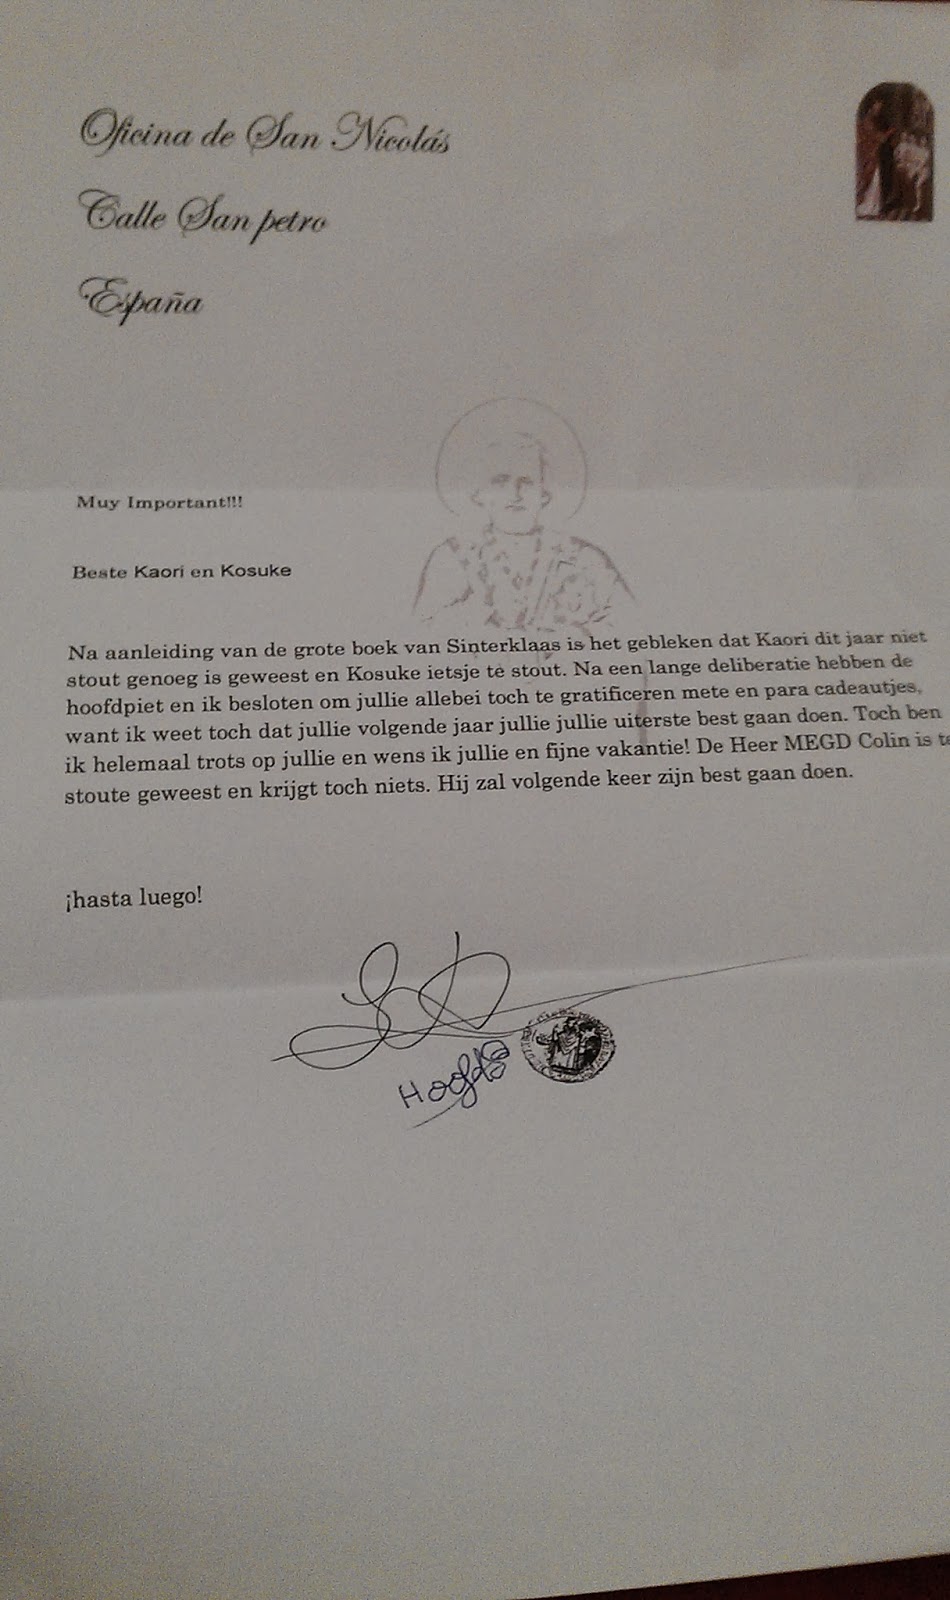 Oficina de San Nicolás
Calle San petro
España
Muy Important!!!
Beste Kaori en Kosuke
Na aanleiding van de grote boek van Sinterklaas is het gebleken dat Kaori dit jaar niet
stout genoeg is geweest en Kosuke ietsje te stout. Na een lange deliberatie hebben de
hoofdpiet en ik besloten om jullie allebei toch te gratificeren mete en para cadeautjes,
want ik weet toch dat jullie volgende jaar jullie jullie uiterste best gaan doen. Toch ben
ik helemaal trots op jullie en wens ik jullie en fijne vakantie! De Heer MEGD Colin is te
stoute geweest en krijgt toch niets. Hij zal volgende keer zijn best gaan doen.
¡hasta luego!